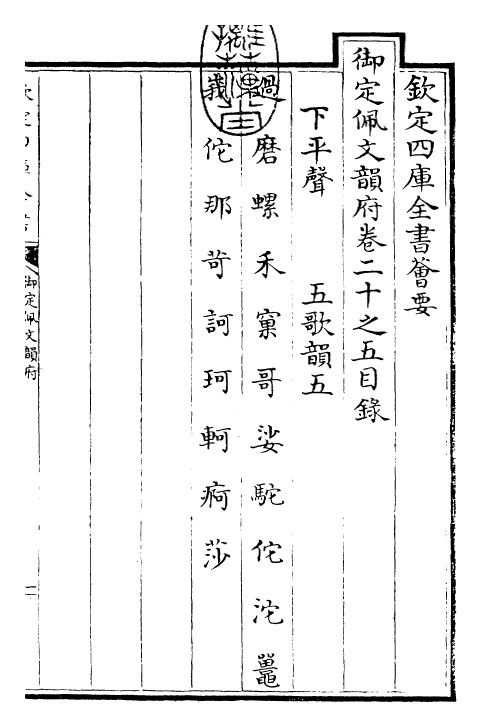 欽定四庫全書薈要
御定佩文韻府卷二十之五目錄
下平聲　五歌韻五
過磨螺禾窠哥娑駝佗沱鼉
峩佗那苛訶珂軻痾莎
御定佩文韻府